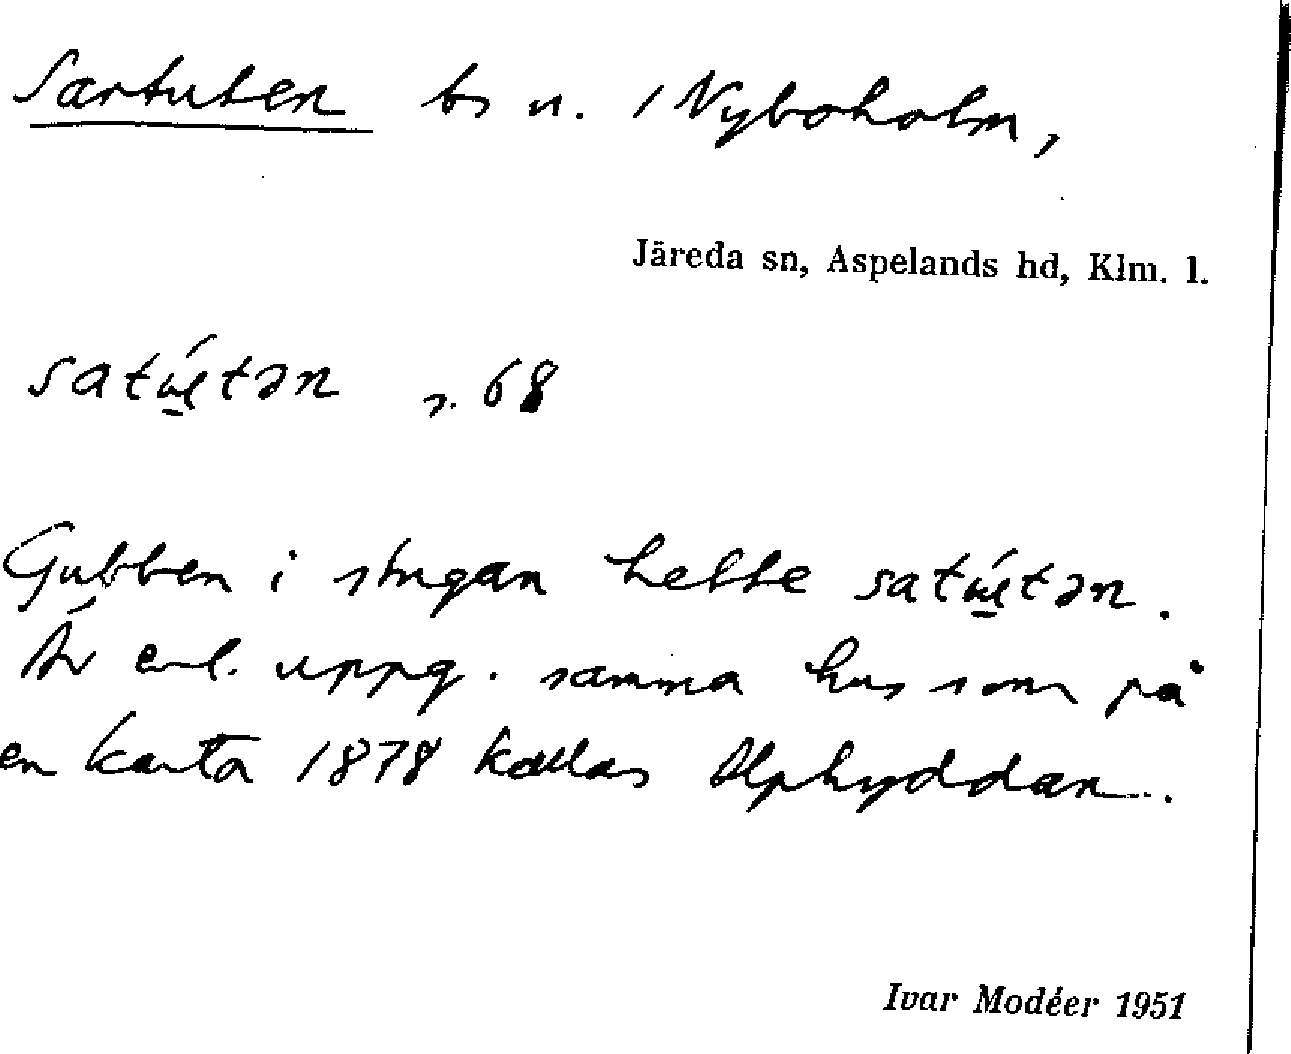 Sartuten ts u. / Nyboholm,
Järeda sn, Aspelands hd, Klm. l.
s. 68
Gubben i stugan hette
Är enl. uppg. samma hus som på
en karta 1878 kallas Alphyddan.
Ivar Modéer 1951